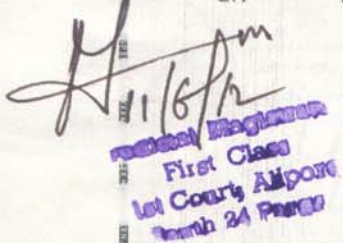 11/6/12
Magistrate
First Class
1st Court, Alipore
South 24 Pargs